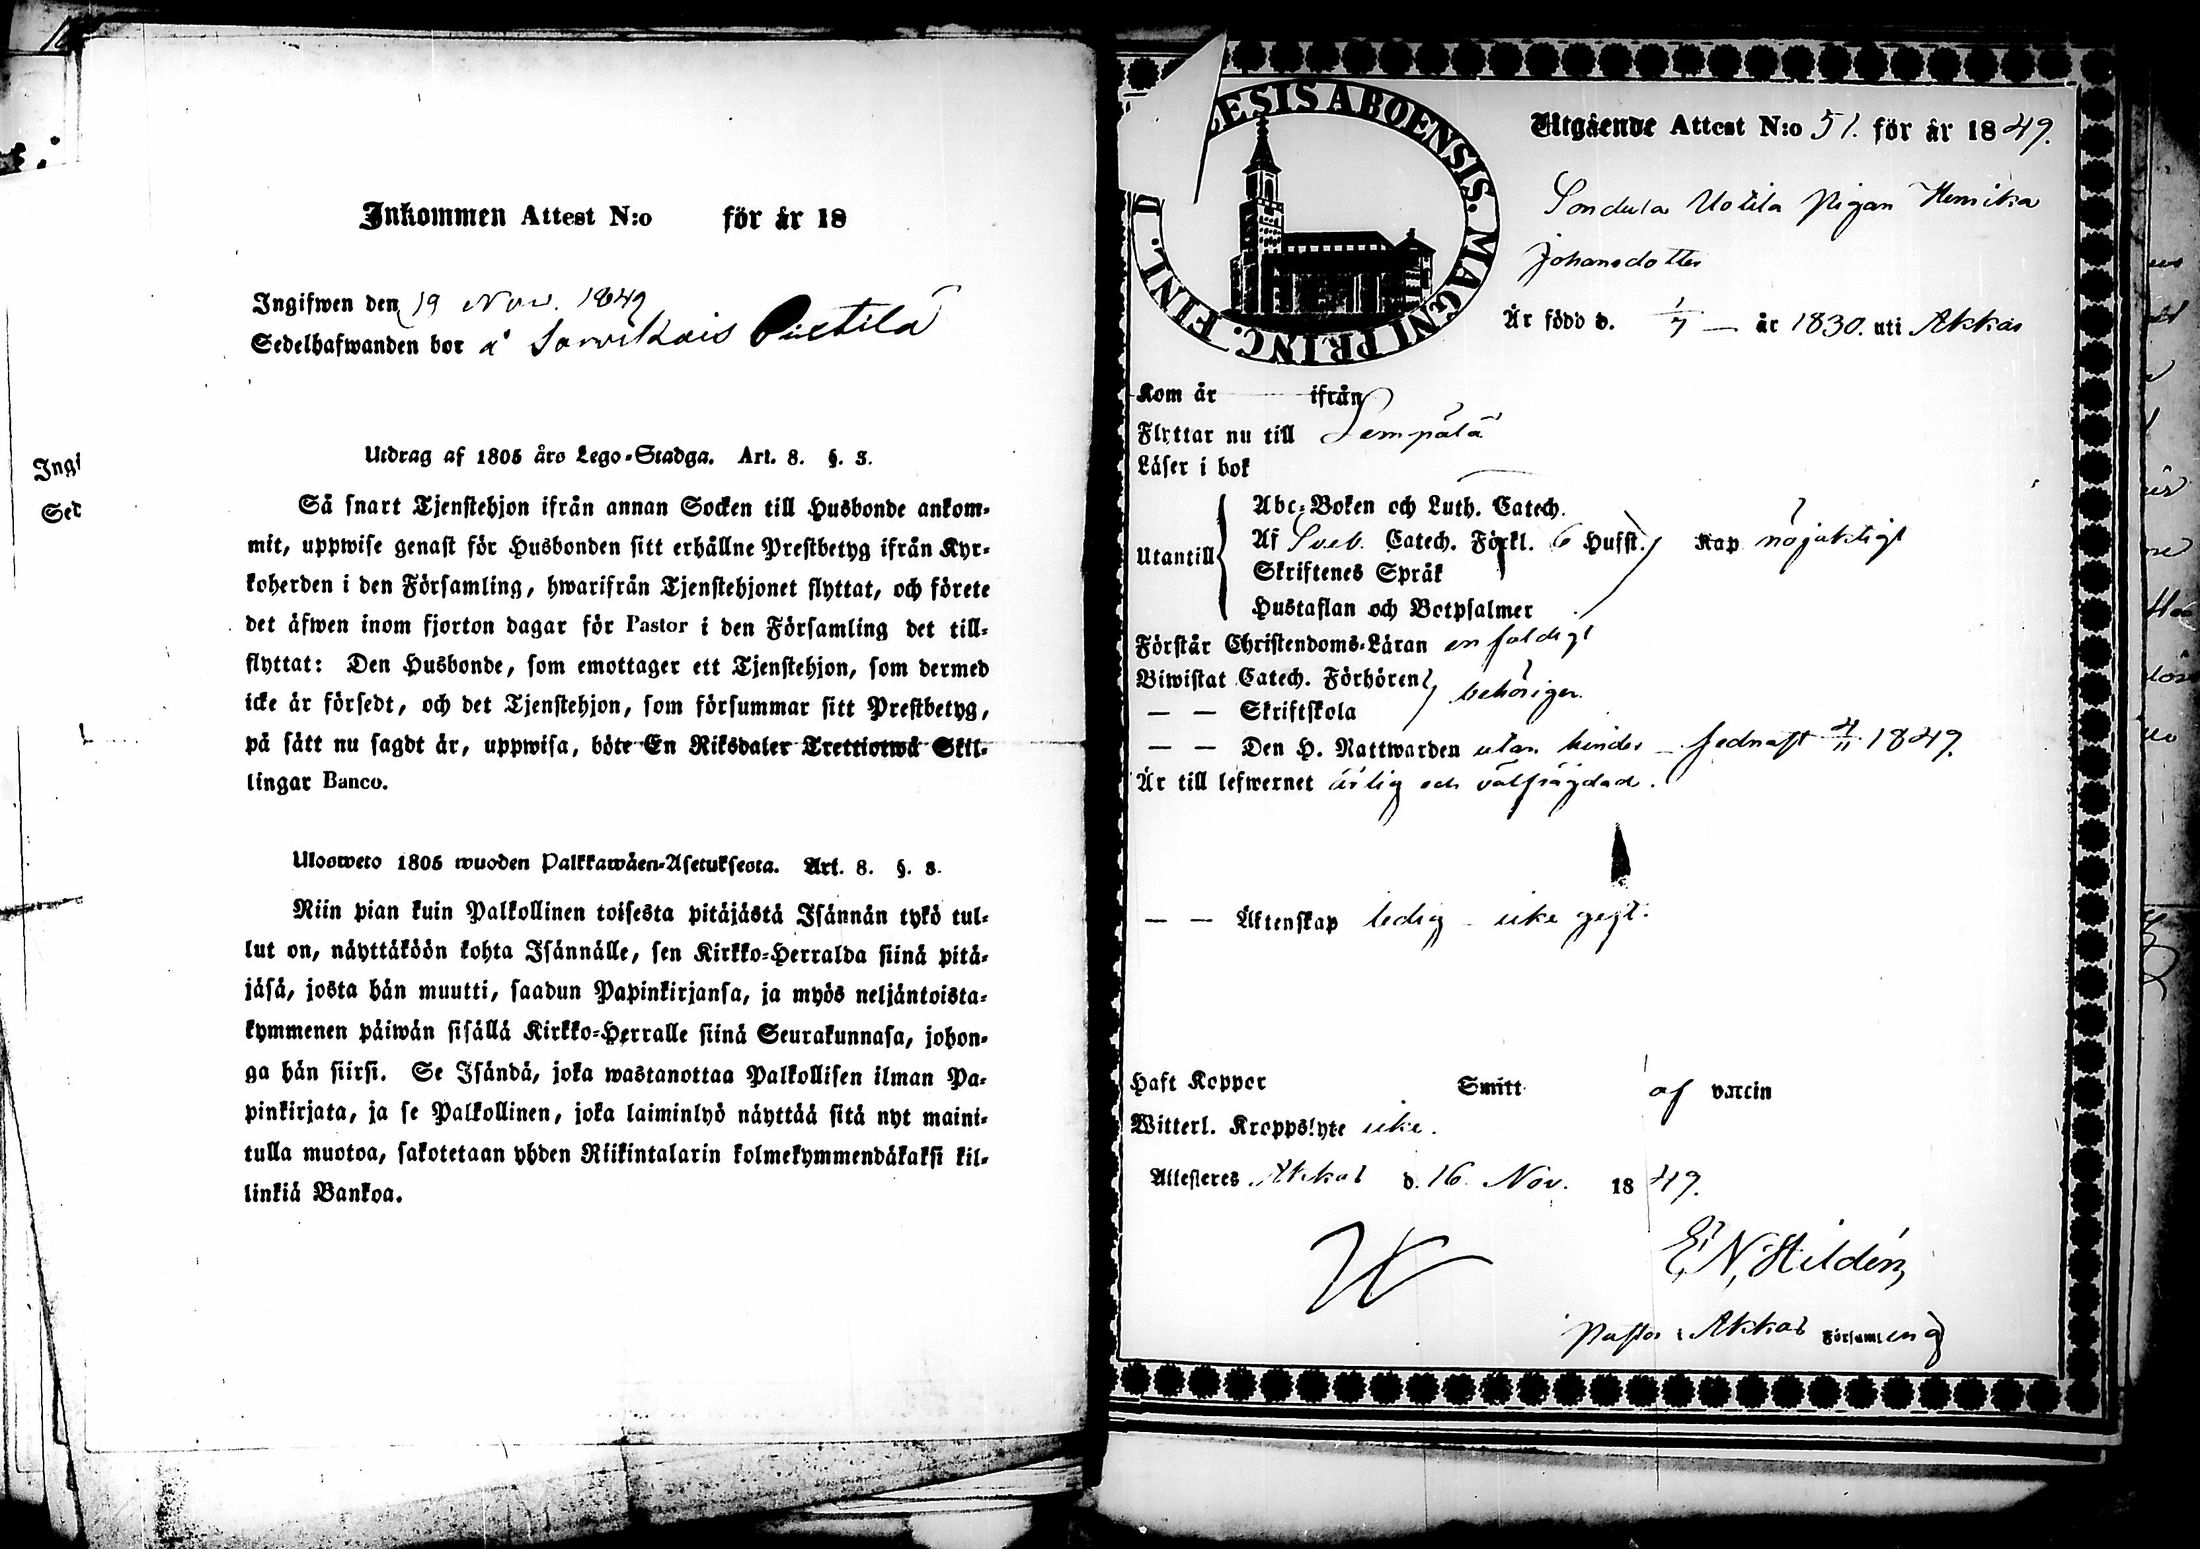 Inkommen Attest N:o för år 18
Ingifwen den 19 Nov. 1849
Sedelhafwanden bor å Sarvikais Pietilä
Utdrag af 1805 års Lego-Stadga. Art. 8. §. 3.
Så snart Tjenstehjon ifrån annan Socken till Husbonde ankom-
mit, uppwise genast för Husbonden sitt erhållne Prestbetyg ifrån Kyr-
koherden i den Församling, hwarifrån Tjenstehjonet flyttat, och förete
det äfwen inom fjorton dagar för Pastor i den Församling det till-
flyttat: Den Husbonde, som emottager ett Tjenstehjon, som dermed
icke är försedt, och det Tjenstehjon, som försummar sitt Prestbetyg,
på sätt nu sagdt är, uppwisa, böte En Riksdaler Trettiotwå Skil-
lingar Banco.
Ulosweto 1805 wuoden Palkkawäen-Asetuksesta. Art. 8. §. 3.
Niin pian kuin Palkollinen toisesta pitäjästä Isännän tykö tul-
lut on, näyttäköön kohta Isännälle, sen Kirkko-Herralda siinä pitä-
jäsä, josta hän muutti, saadun Papinkirjansa, ja myös neljäntoista-
kymmenen päiwän sisällä Kirkko-Herralle siinä Seurakunnasa, johon-
ga hän siirsi. Se Isändä, joka wastanottaa Palkollisen ilman Pa-
pinkirjata, ja se Palkollinen, joka laiminlyö näyttää sitä nyt maini-
tulla muotoa, sakotetaan yhden Riikintalarin kolmekymmendäkaksi kil-
linkiä Bankoa.
Ingi
Sed
ESIS ABOENSIS. MAGNI PRINC. FINL. D
Utgående Attest N:o 51. för år 1849.
Sondula Uotila Pigan Henrika
Johansdotter
Är född d. 1/7 — år 1830. uti Akkas
Kom år — ifrån
Flyttar nu till Lempälä
Läser i bok
Utantill
Abc-Boken och Luth. Catech.
Af Sveb. Catech. Förkl. 6 Hufst. Kap nöjaktigt
Skriftenes Språk
Hustaflan och Botpsalmer
Förstår Christendoms-Läran enfaldigt
Biwistat Catech. Förhören behörigen.
— — Skriftskola
— — Den H. Nattwarden utan hinder — sednast 4/11 1849.
Är till lefwernet ärlig och välfrägdad.
— — Äktenskap ledig — icke gift.
Haft Koppor Smitt af vaccin
Witterl. Kroppslyte icke.
Attesteres Akkas d. 16 Nov. 1849.
E. N. Hildén,
Pastor i Akkas Församling